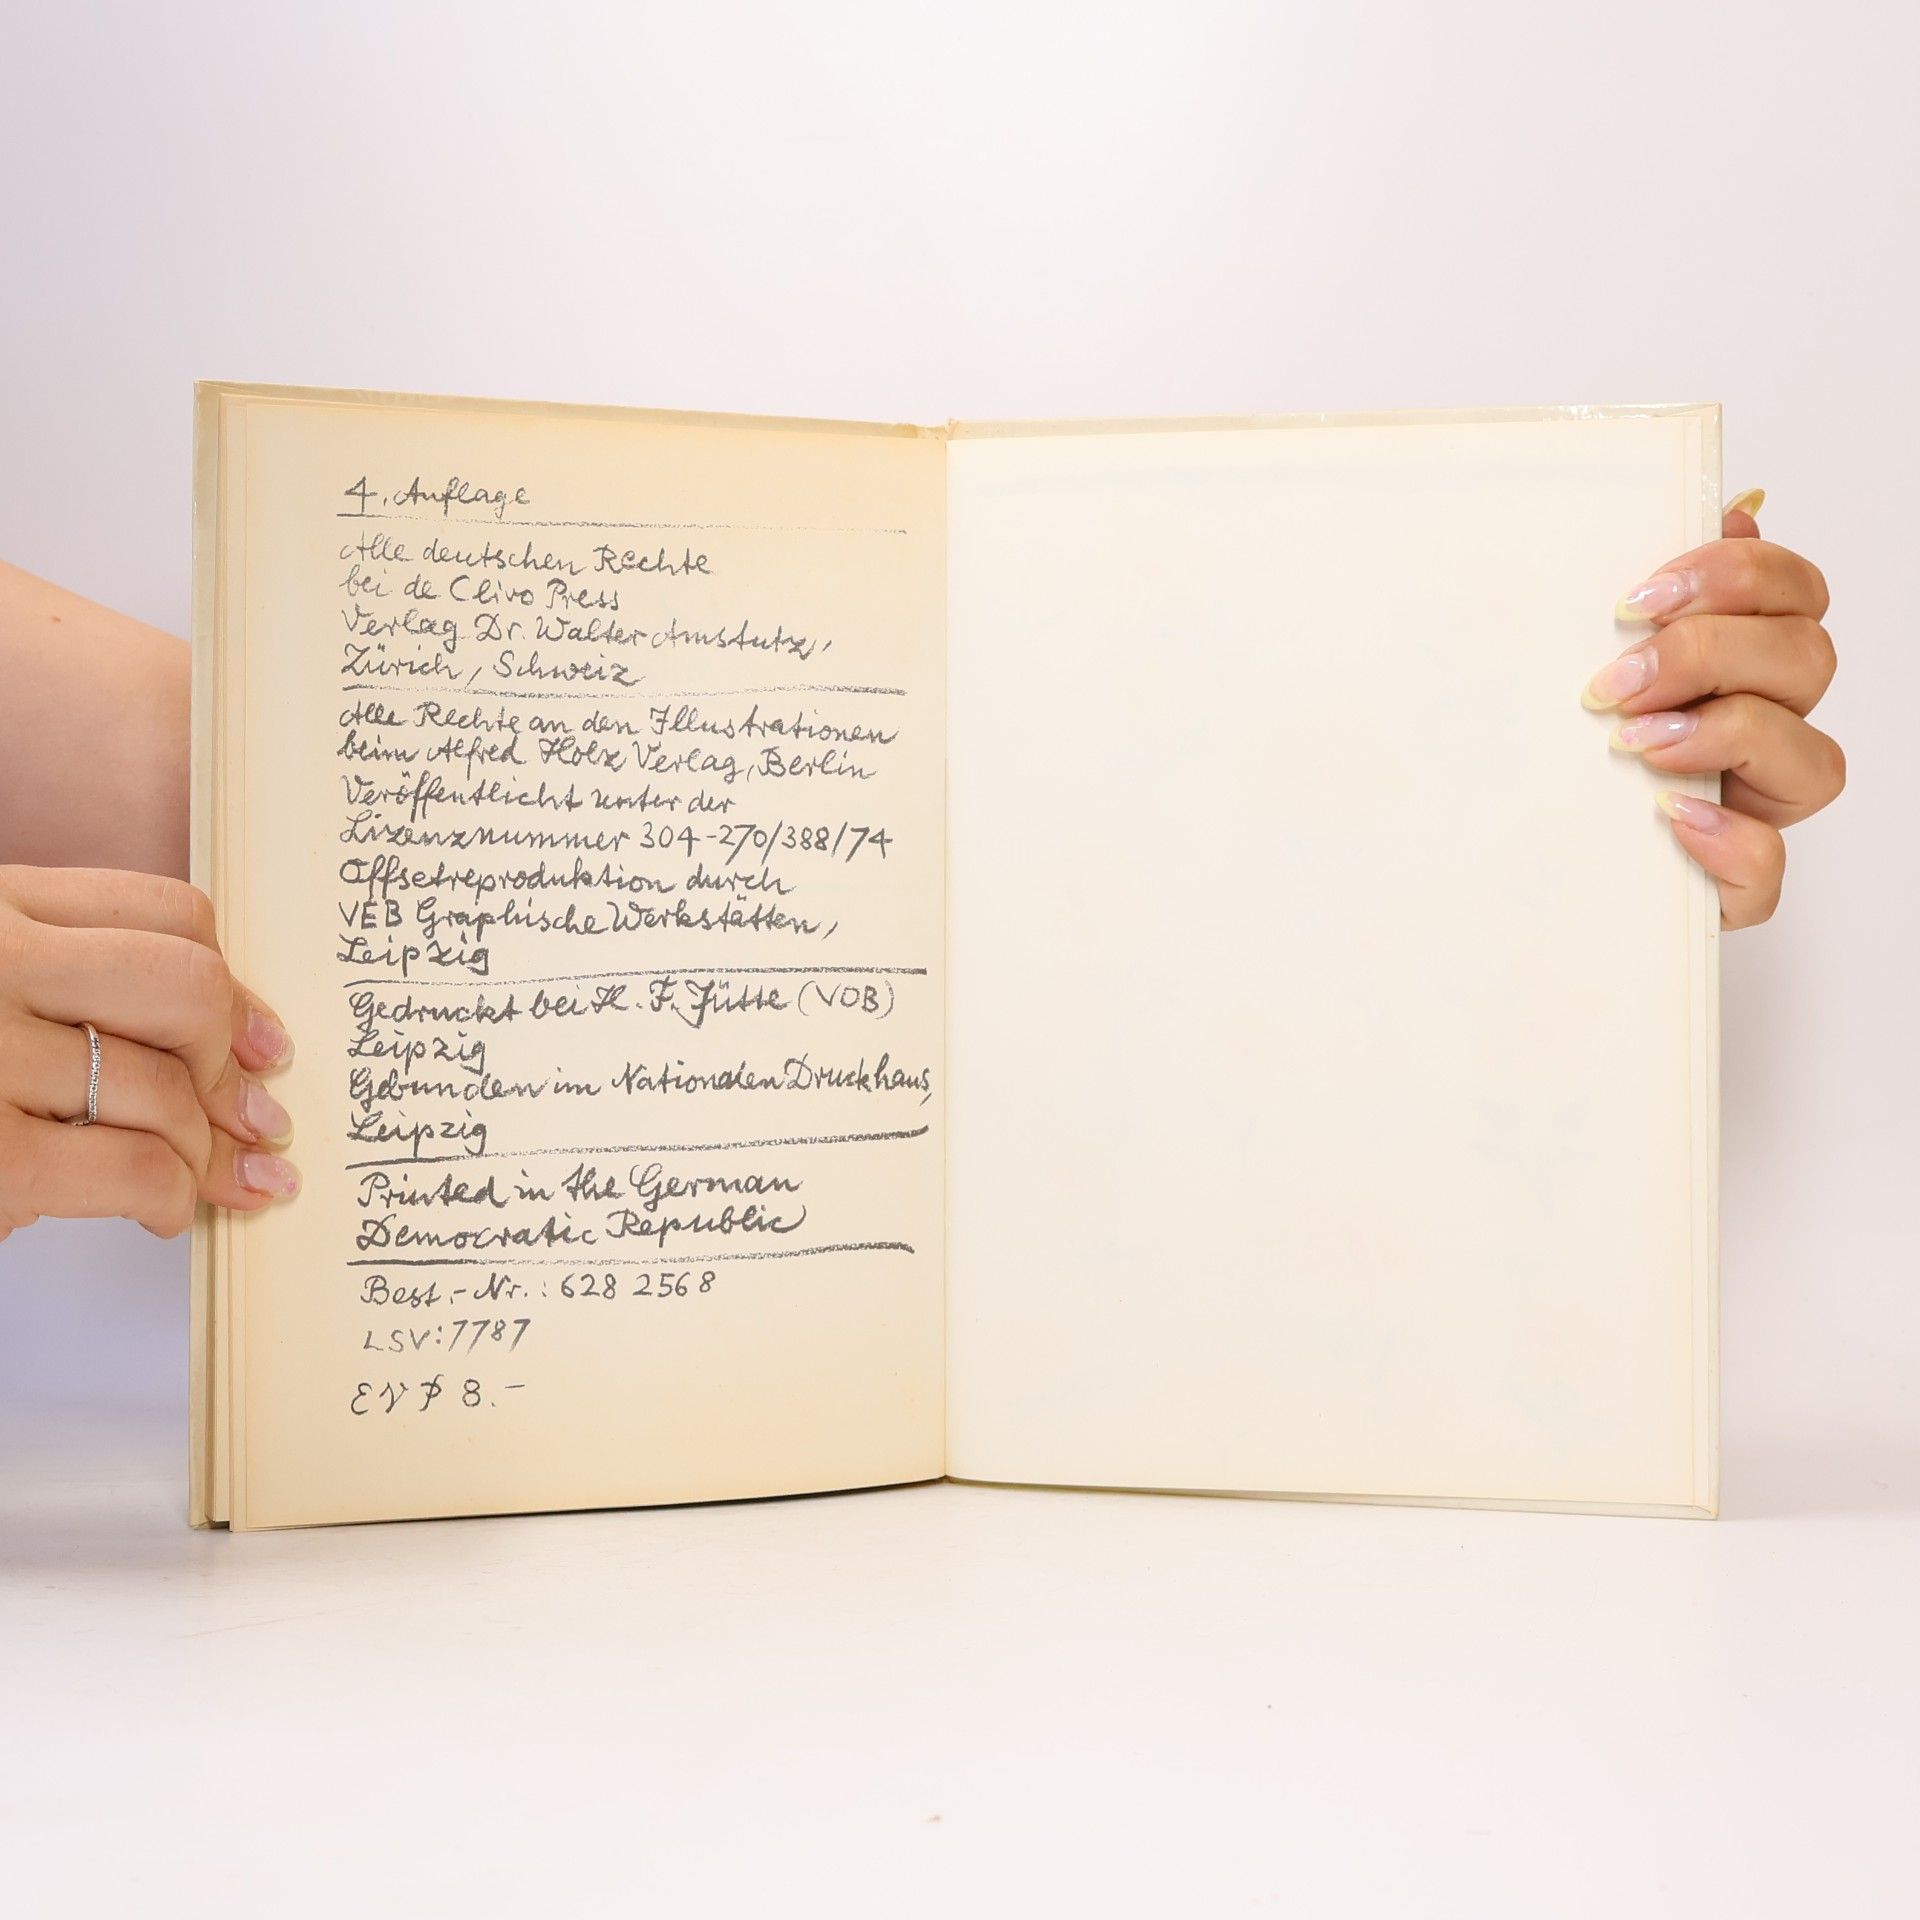 4. Auflage
Alle deutschen Rechte
bei de Clivo Press
Verlag Dr. Walter Amstutz,
Zürich, Schweiz
Alle Rechte an den Illustrationen
beim Alfred Holz Verlag, Berlin
Veröffentlicht unter der
Lizenznummer 304-270/388/74
Offsetreproduktion durch
VEB Graphische Werkstätten,
Leipzig
Gedruckt bei H. F. Jütte (VOB)
Leipzig
Gebunden im Nationalen Druckhaus,
Leipzig
Printed in the German
Democratic Republic
Best.-Nr.: 628 2568
LSV: 7787
EVP 8.-